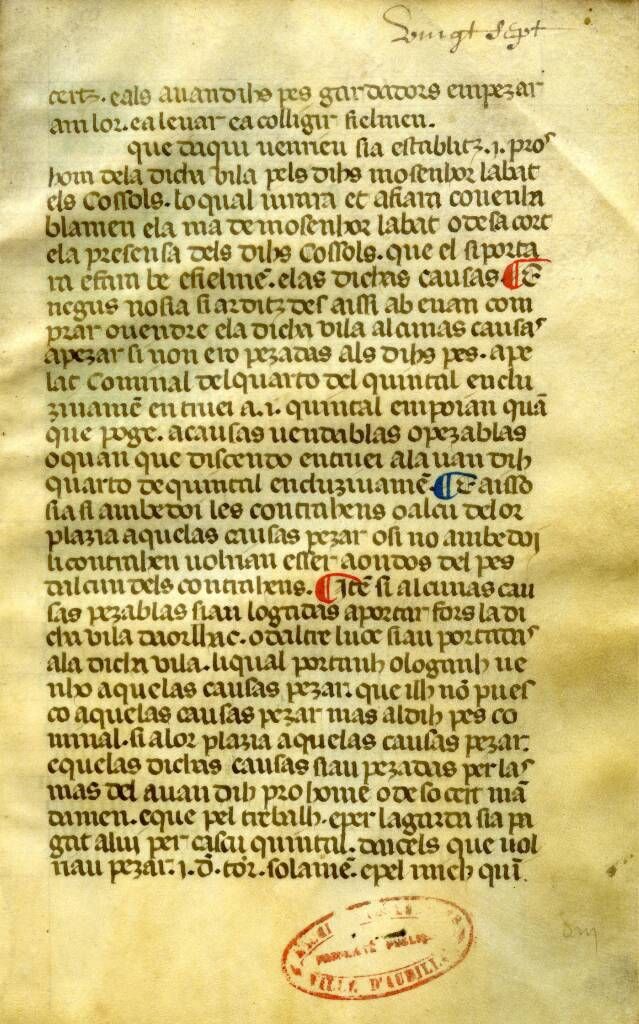 vingt sept
certz. e als auandihs pes gardadors e enpezar
am lor. e a leuar e a colligir fielmen.
que daqui uenreu sia establitz .i. pros
hom dela dicha vila pels dihs mosenhor labat
els Cossols. lo qual iurara et afiara couenha
blamen e la ma de mosenhor labat o de sa cort
e la presensa dels dihs Cossols. que el si porta
ra e fara be e fielmē. e las dichas causas. E
negus no sia si arditz des aissi ab euan com
prar o uendre e la dicha vila alcunas causas
a pezar si non ero pezadas als dihs pes. a pe
lat Comunal del quarto del quintal encluz
ziuamē en tiuei a .i. quintal em poian quā
que poge. a causas uendablas o pezablas
o quan que discendo entiuei al auandih
quarto de quintal encluziuamē. E aisso
sia si ambedoi les contrahens o alcu de lor
plazia aquelas causas pezar o si no ambedoi
li contrahen uolrian esser aondos del pes
dalcun dels contrahens. Itē si alcunas cau
sas pezablas siau logadas a portar fors la di
cha vila daorllac. o daltre luec siau portadas
a la dicha vila. li qual portauh o logauh ue
nho aquelas causas pezar. que ilh nō pues
co aquelas causas pezar mas al dih pes co
munal. si a lor plazia aquelas causas pezar.
e quelas dichas causas siau pezadas per las
mas del auandih prohome o de so cert mā
damen. e que pel trebalh. e per la garda sia pa
gat a lui per cascu quintal. daicels que uol
rau pezar .i. d. tor. solamē. e pel miech qui
VILLE D'AURILLAC